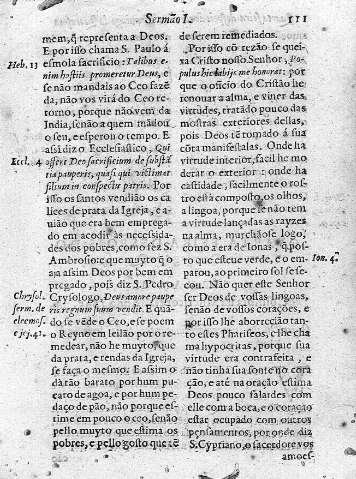 Sermão I.
111
mem, q̃ representa a Deos.
E por isso chama S. Paulo á
Heb. 13
esmola sacrificio: Talibus e-
nim hostiis promeretur Deus, e
se não mandais ao Ceo fazẽ
da, não vos virá do Ceo re
torno, porque não vem da
India, senão a quem mãdou
o seu, e esperou o tempo. E
assi diz o Eclesiastico, Qui
Eccl. 4
offert Deo sacrificium de substã
tia pauperis, quasi qui victimat
filium in conspectu patris. Por
isso os santos vendião os ca
lices de prata da Igreja, e a-
uião que era bem emprega-
do em acodir ás necessida-
des dos pobres, como fez S.
Ambrosio: que muyto q̃ o
aja assim Deos por bem em
pregado, pois diz S. Pedro
Chrysol.
Crysologo, Deus amore paupe
serm. de
ris regnum suum vendit. E quã-
eleemos.
do se vẽde o Ceo, e se poem
o Reyno em leilão por o re-
medear, não he muyto, que
da prata, e tendas da Igreja,
se faça o mesmo. E assim o
dàrão barato por hum pu-
caro de agoa, e por hum pe-
daço de pão, não porque es-
time em pouco o ceo, senão
pello muyto que estima os
pobres, e pello gosto que tẽ
de serem remediados.
Por isso cõ rezão se quei-
xa Cristo nosso Senhor, Po-
pulus hic labijs me honorat: por
que o officio do Cristão he
renouar a alma, e viuer das
virtudes, tratãdo pouco das
mostras exteriores dellas,
pois Deos tẽ tomado á sua
cõta manifestalas. Onde ha
virtude interior, facil he mo
derar o exterior: onde ha
castidade, facilmente o ros-
tro está composto, os olhos,
a lingoa, porque se não tem
a virtude lançadas as rayzes
na alma, murchãose logo,
como a era de Ionas, q̃ pos-
Ion. 4.
to que esteue verde, e o em-
parou, ao primeiro sol se se-
cou. Não quer este Senhor
ser Deos de vossas lingoas,
senão de vossos corações, e
por isso lhe aborrecião tan-
to estes Phariseos, e lhe cha
ma hypocritas, porque sua
virtude era contrafeita, e
não tinha sua fonte no cora
ção, e até na oração estima
Deos pouco falardes com
elle com a boca, e o coração
estar occupado com outros
pensamentos, por onde diz
S. Cypriano, o sacerdote vos
amoes-